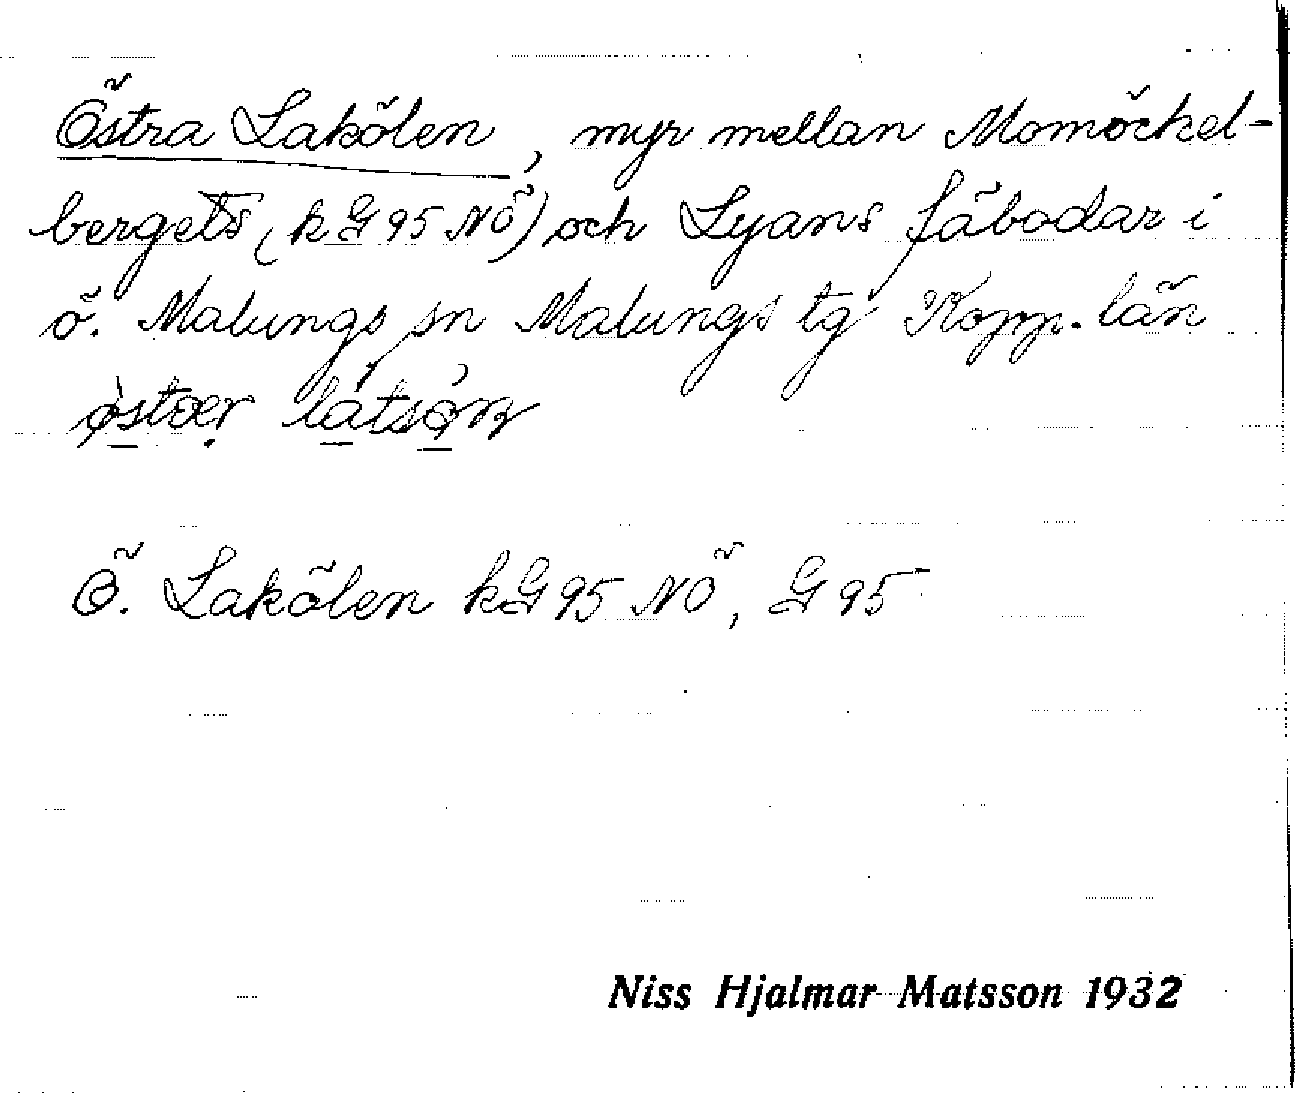 Östra Lakölen, myr mellan Momöckel-
bergets (k G 95 NÖ) och Lyans fäbodar i
ö. Malungs sn Malungs tg Kopp. län
Ö. Lakölen k G 95 NÖ, G 95
Niss Hjalmar Matsson 1932